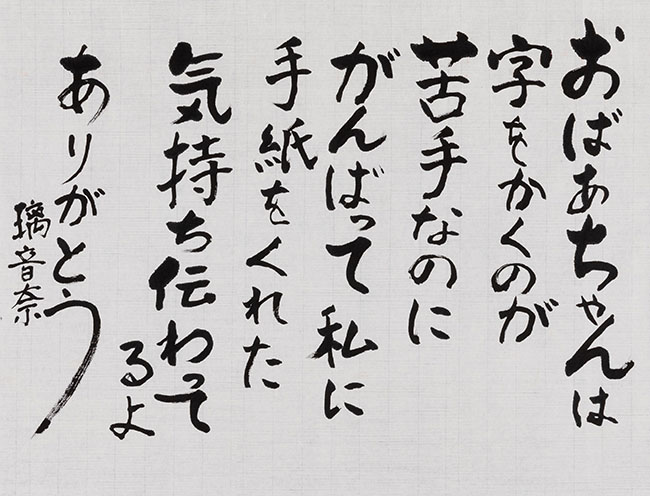 おばあちゃんは
字をかくのが
苦手なのに
がんばって私に
手紙をくれた
気持ち伝わって
るよ
ありがとう
璃音奈